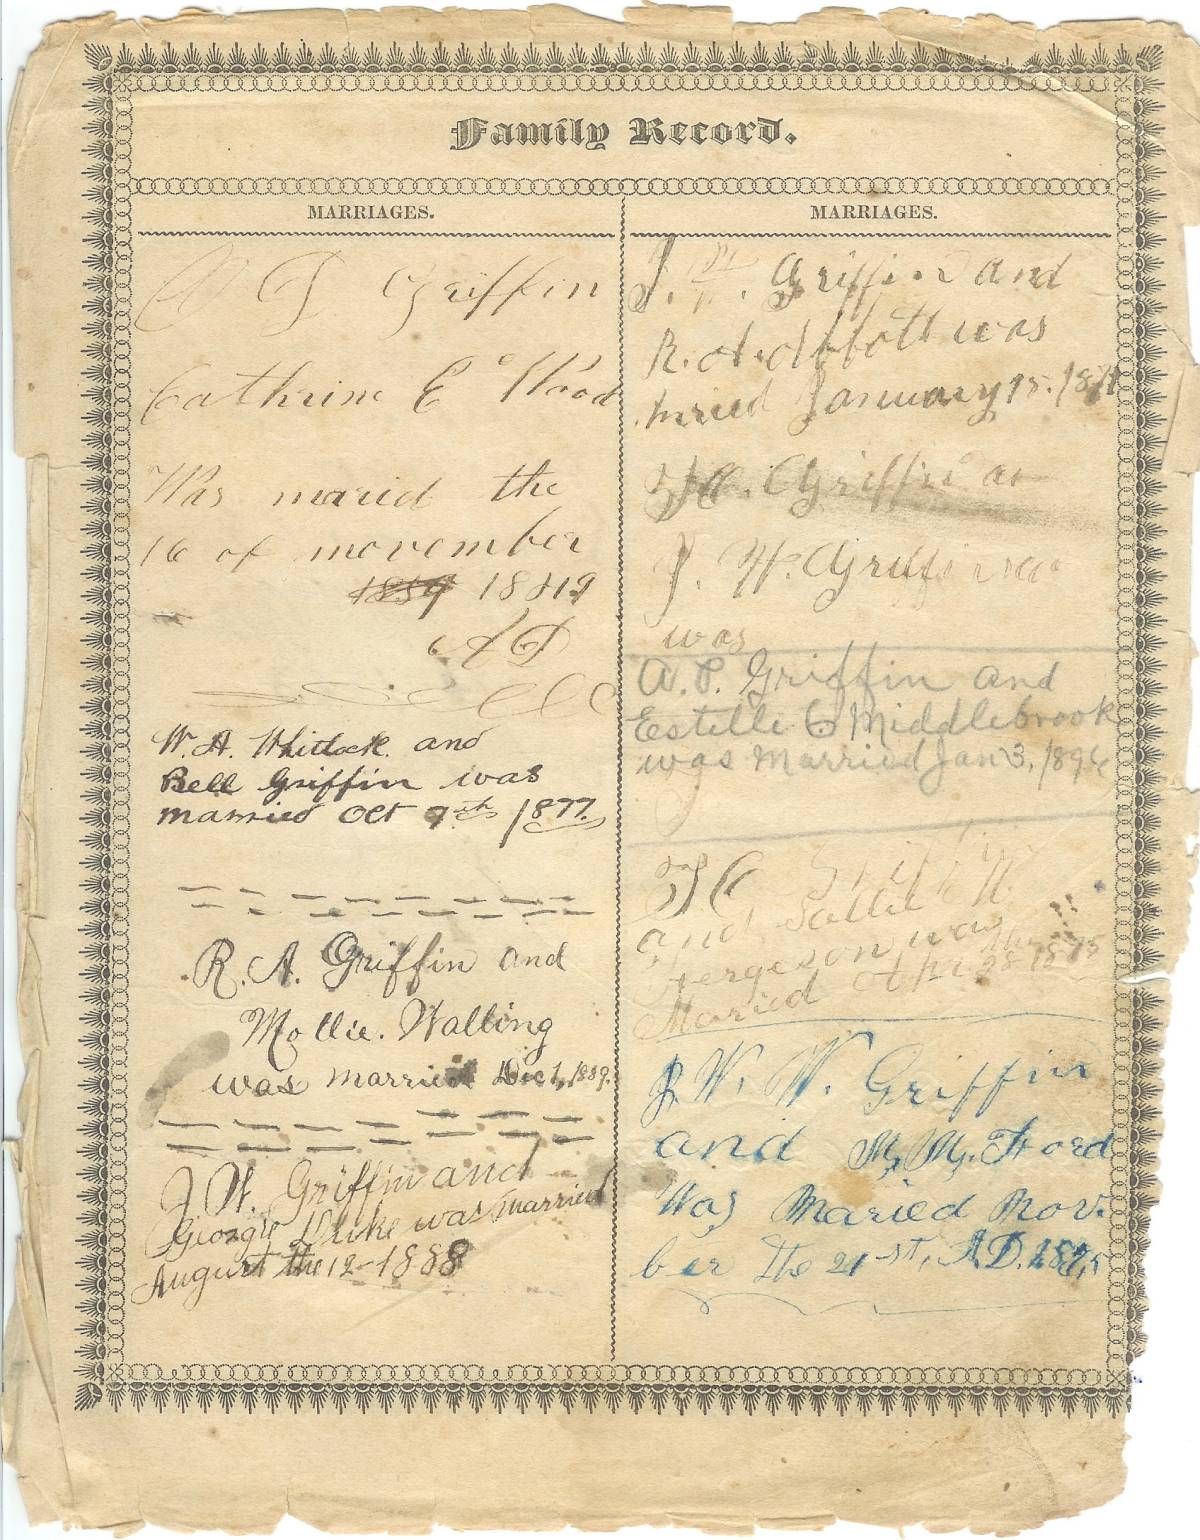 Family Record.
MARRIAGES.
Griffin
Cathrine E Wood
Was maried the
16 of november
1859 1849
AD
W. A. Whitlock and
Bell Griffin was
married Oct 9th 1877.
R. A. Griffin and
Mollie. Walling
was married Dec 1, 1889.
J W. Griffin and
Georgie Duke was married
August the 12-1888
MARRIAGES.
J. Griffin and
R. A. Abbott was
maried January 15. 18
Griffin
J. W. Griffin
was
A. P. Griffin and
Estelle C Middlebrook
was Married Jan 3, 1896
and Sallie
Fergeson was
Maried Apr 28 1875
J. W. W. Griffin
and M, M, Ford
Was Maried Nov.
ber the 21-st, A.D. 1895